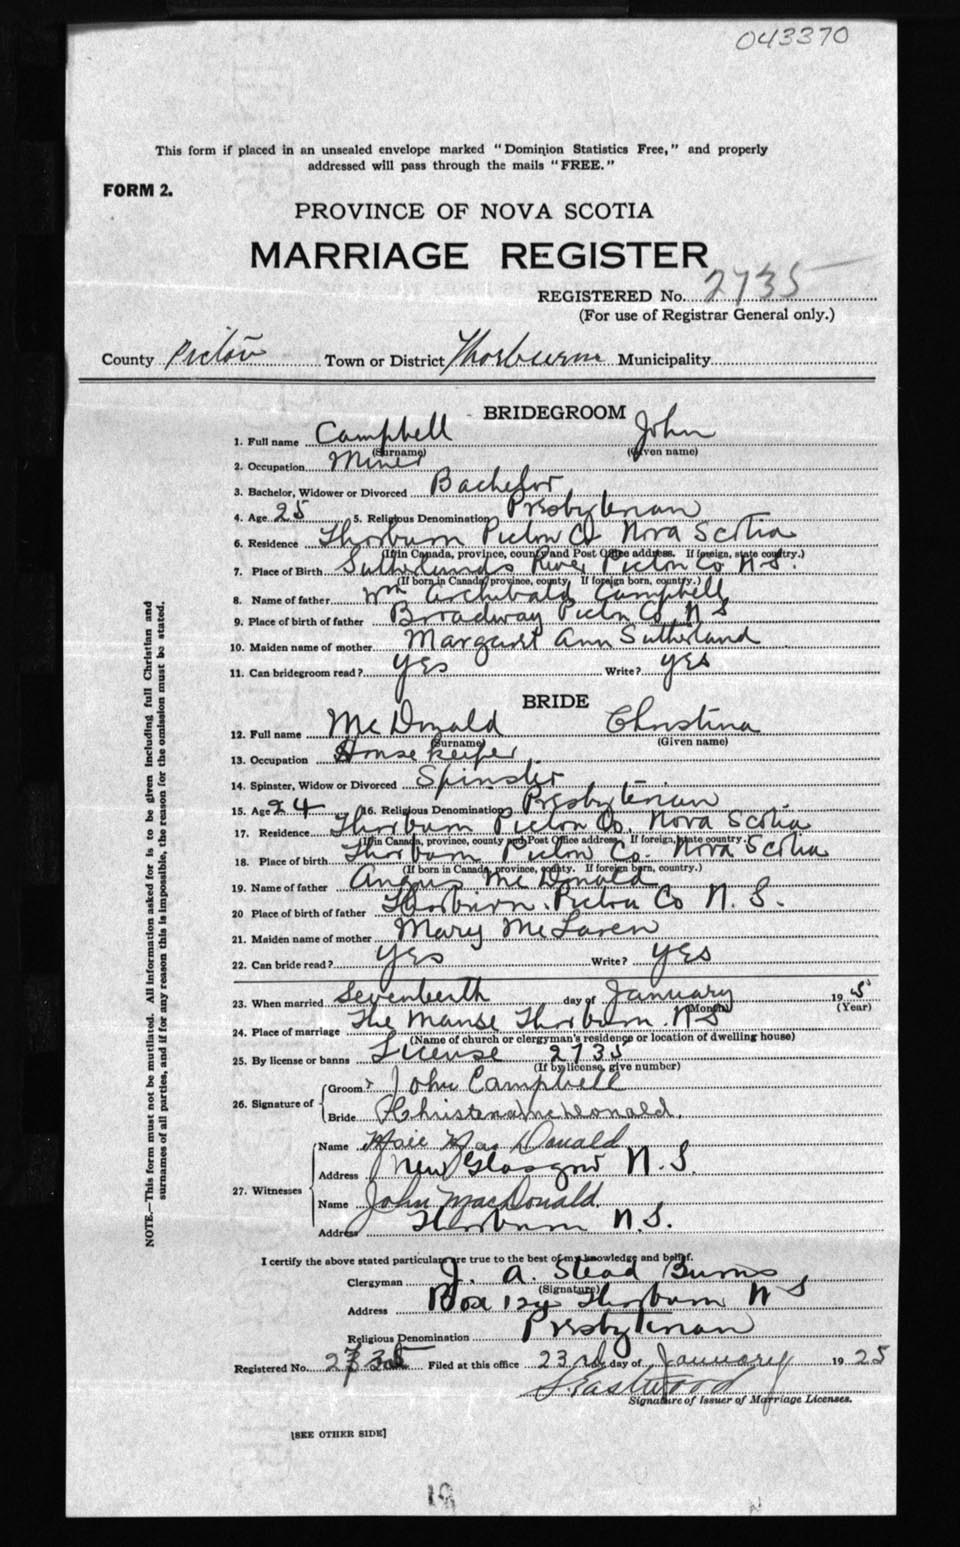 043370
This form if placed in an unsealed envelope marked "Dominion Statistics Free," and properly
addressed will pass through the mails "FREE."
FORM 2.
PROVINCE OF NOVA SCOTIA
MARRIAGE REGISTER
REGISTERED No. 2735
(For use of Registrar General only.)
County Pictou Town or District Thorburn Municipality
BRIDEGROOM
1. Full name Campbell John
(Surname) (Given name)
2. Occupation Miner
3. Bachelor, Widower or Divorced Bachelor
4. Age 25 5. Religious Denomination Presbyterian
6. Residence Thorburn Pictou Co Nova Scotia
(If in Canada, province, county and Post Office address. If foreign, state country.)
7. Place of Birth Sutherlands River Pictou Co N.S.
(If born in Canada, province, county. If foreign born, country.)
8. Name of father Wm Archibald Campbell
9. Place of birth of father Broadway Pictou Co N S
10. Maiden name of mother Margaret Ann Sutherland
11. Can bridegroom read? yes Write? yes
BRIDE
12. Full name McDonald Christina
(Surname) (Given name)
13. Occupation House keeper
14. Spinster, Widow or Divorced Spinster
15. Age 24 16. Religious Denomination Presbyterian
17. Residence Thorburn Pictou Co. Nova Scotia
(If in Canada, province, county and Post Office address. If foreign, state country.)
18. Place of birth Thorburn Pictou Co. Nova Scotia
(If born in Canada, province, county. If foreign born, country.)
19. Name of father Angus McDonald
20 Place of birth of father Thorburn. Pictou Co N. S.
21. Maiden name of mother Mary McLaren
22. Can bride read? yes Write? yes
23. When married Seventeenth day of January 19
(Month) (Year)
24. Place of marriage The Manse Thorburn. NS
(Name of church or clergyman's residence or location of dwelling house)
25. By license or banns License 2735
(If by license, give number)
26. Signature of Groom John Campbell
Bride Christena McDonald.
27. Witnesses Name MacDonald
Address New Glasgow N.S.
Name John MacDonald.
Address Thorburn N.S.
I certify the above stated particulars are true to the best of my knowledge and belief.
Clergyman J. A. Stead Burns
(Signature)
Address Box Thorburn N S
Religious Denomination Presbyterian
Registered No. 2735 Filed at this office 23rd day of January 19 25
Eastwood
Signature of Issuer of Marriage Licenses.
[SEE OTHER SIDE]
NOTE.—This form must not be mutilated. All information asked for is to be given including full Christian and
surnames of all parties, and if for any reason this is impossible, the reason for the omission must be stated.